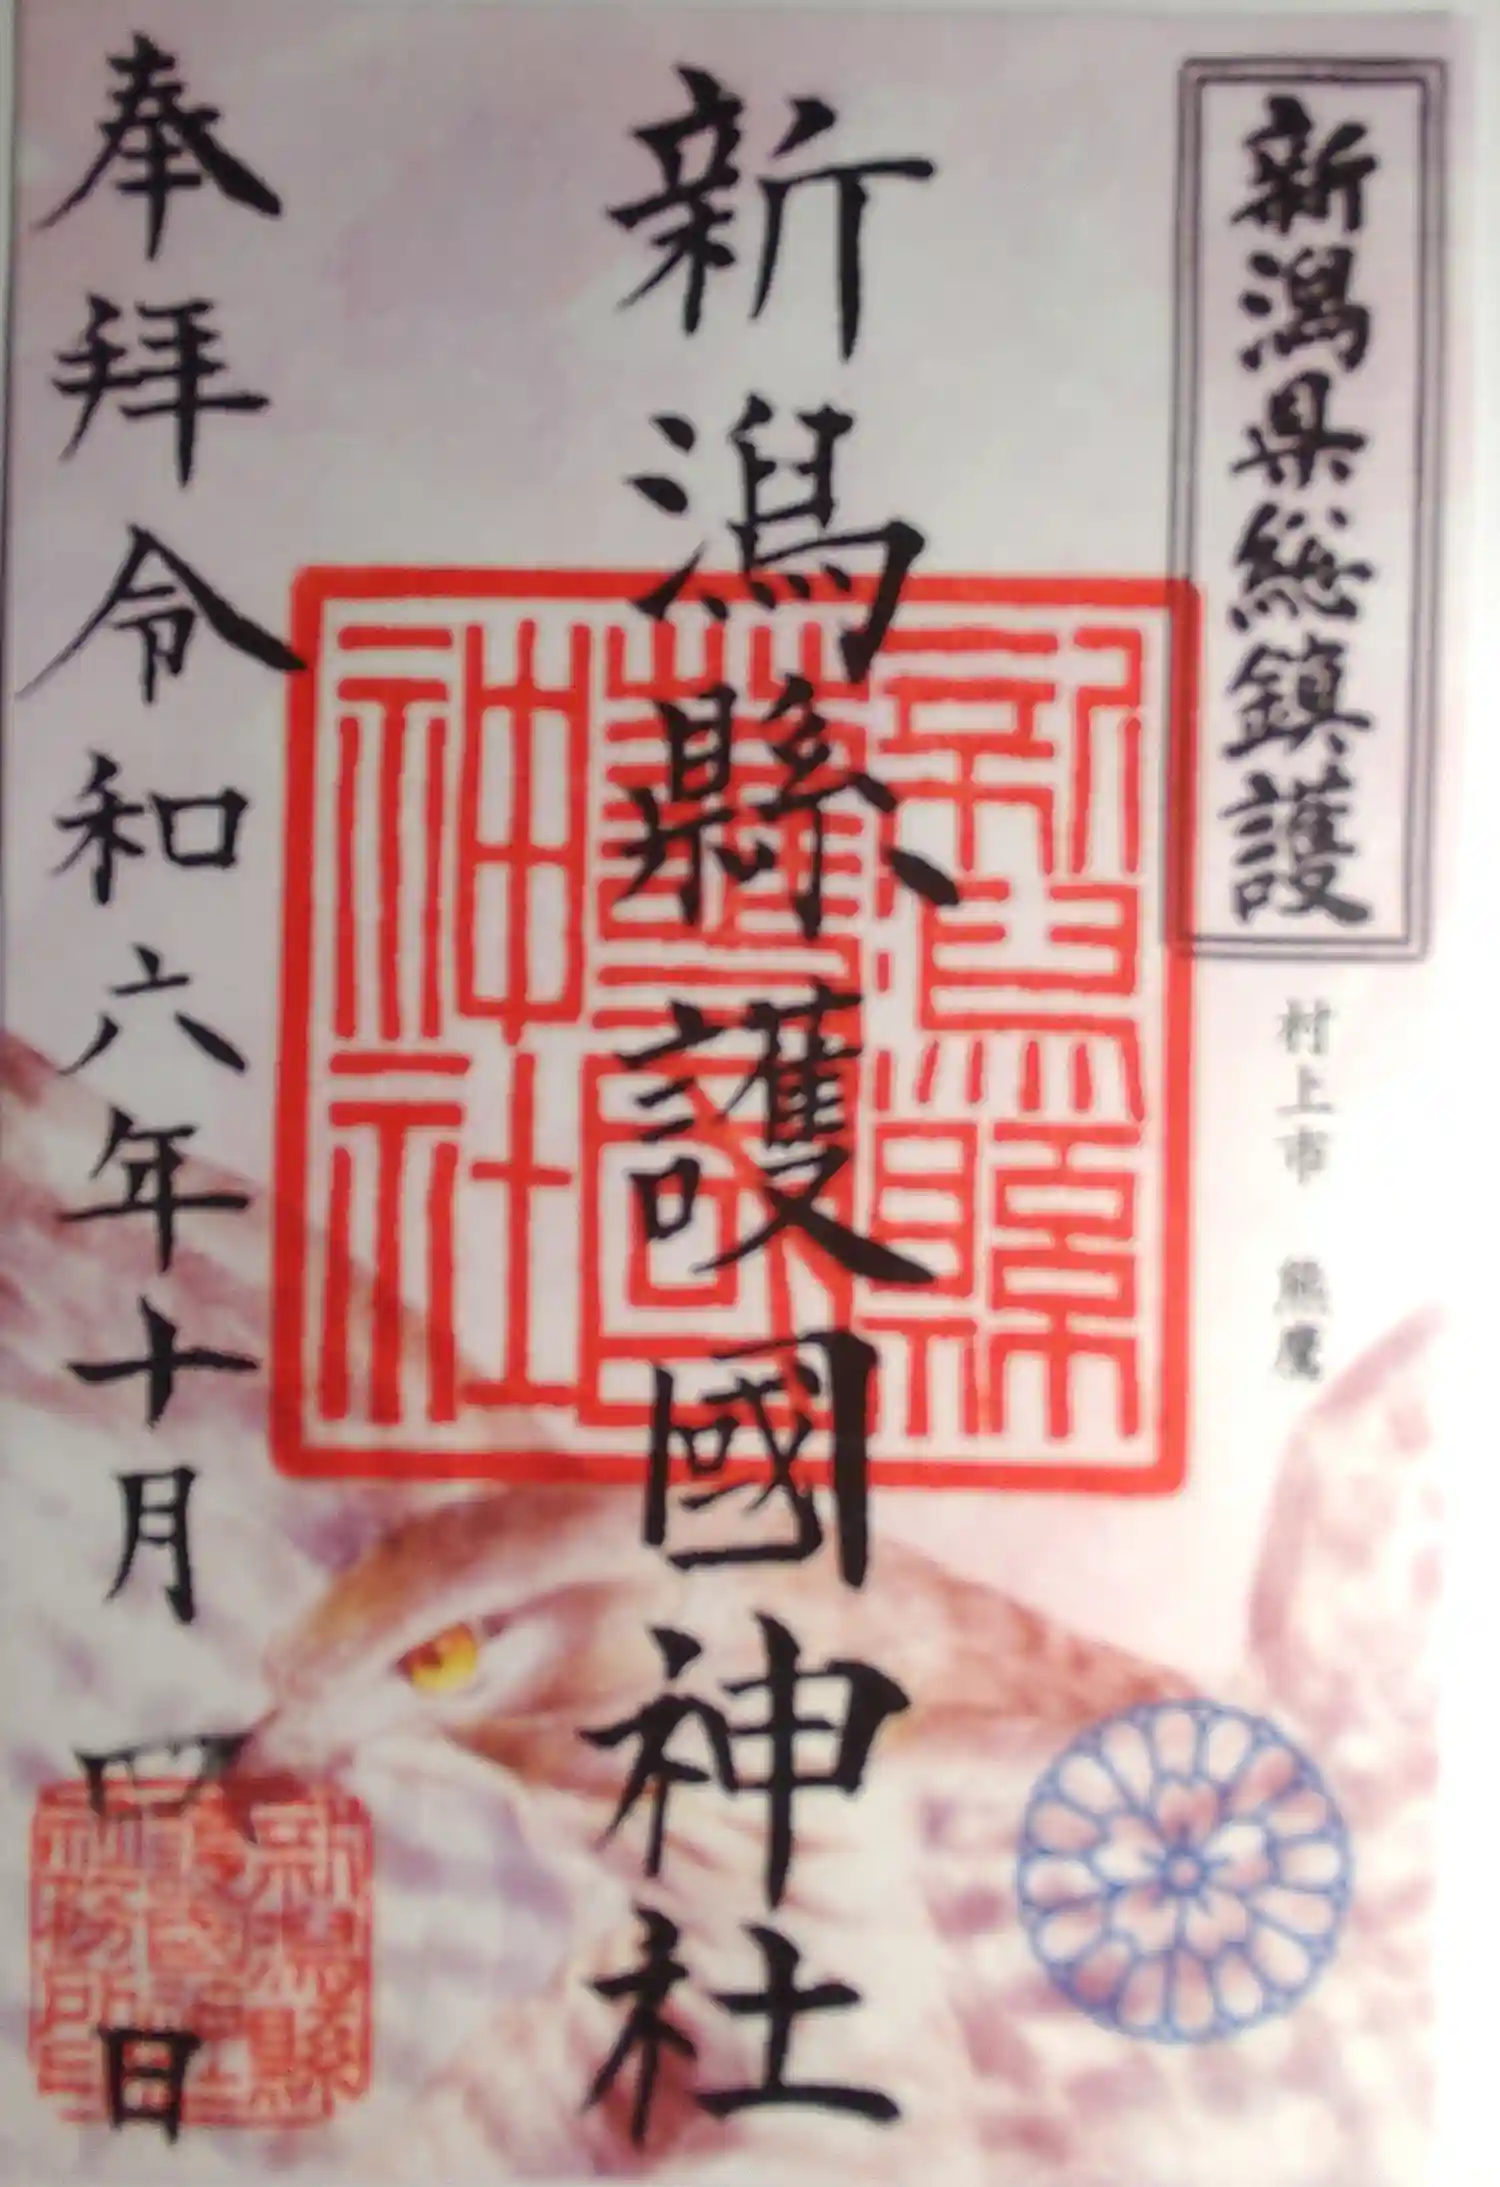 新潟県総鎮護
村上市　熊鷹
新潟縣護國神社
新潟縣護國神社
奉拝令和六年十月四日
新潟縣護國神社社務所印